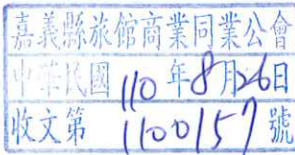 嘉義縣旅館商業同業公會
中華民國110年8月26日
收文第1100157號